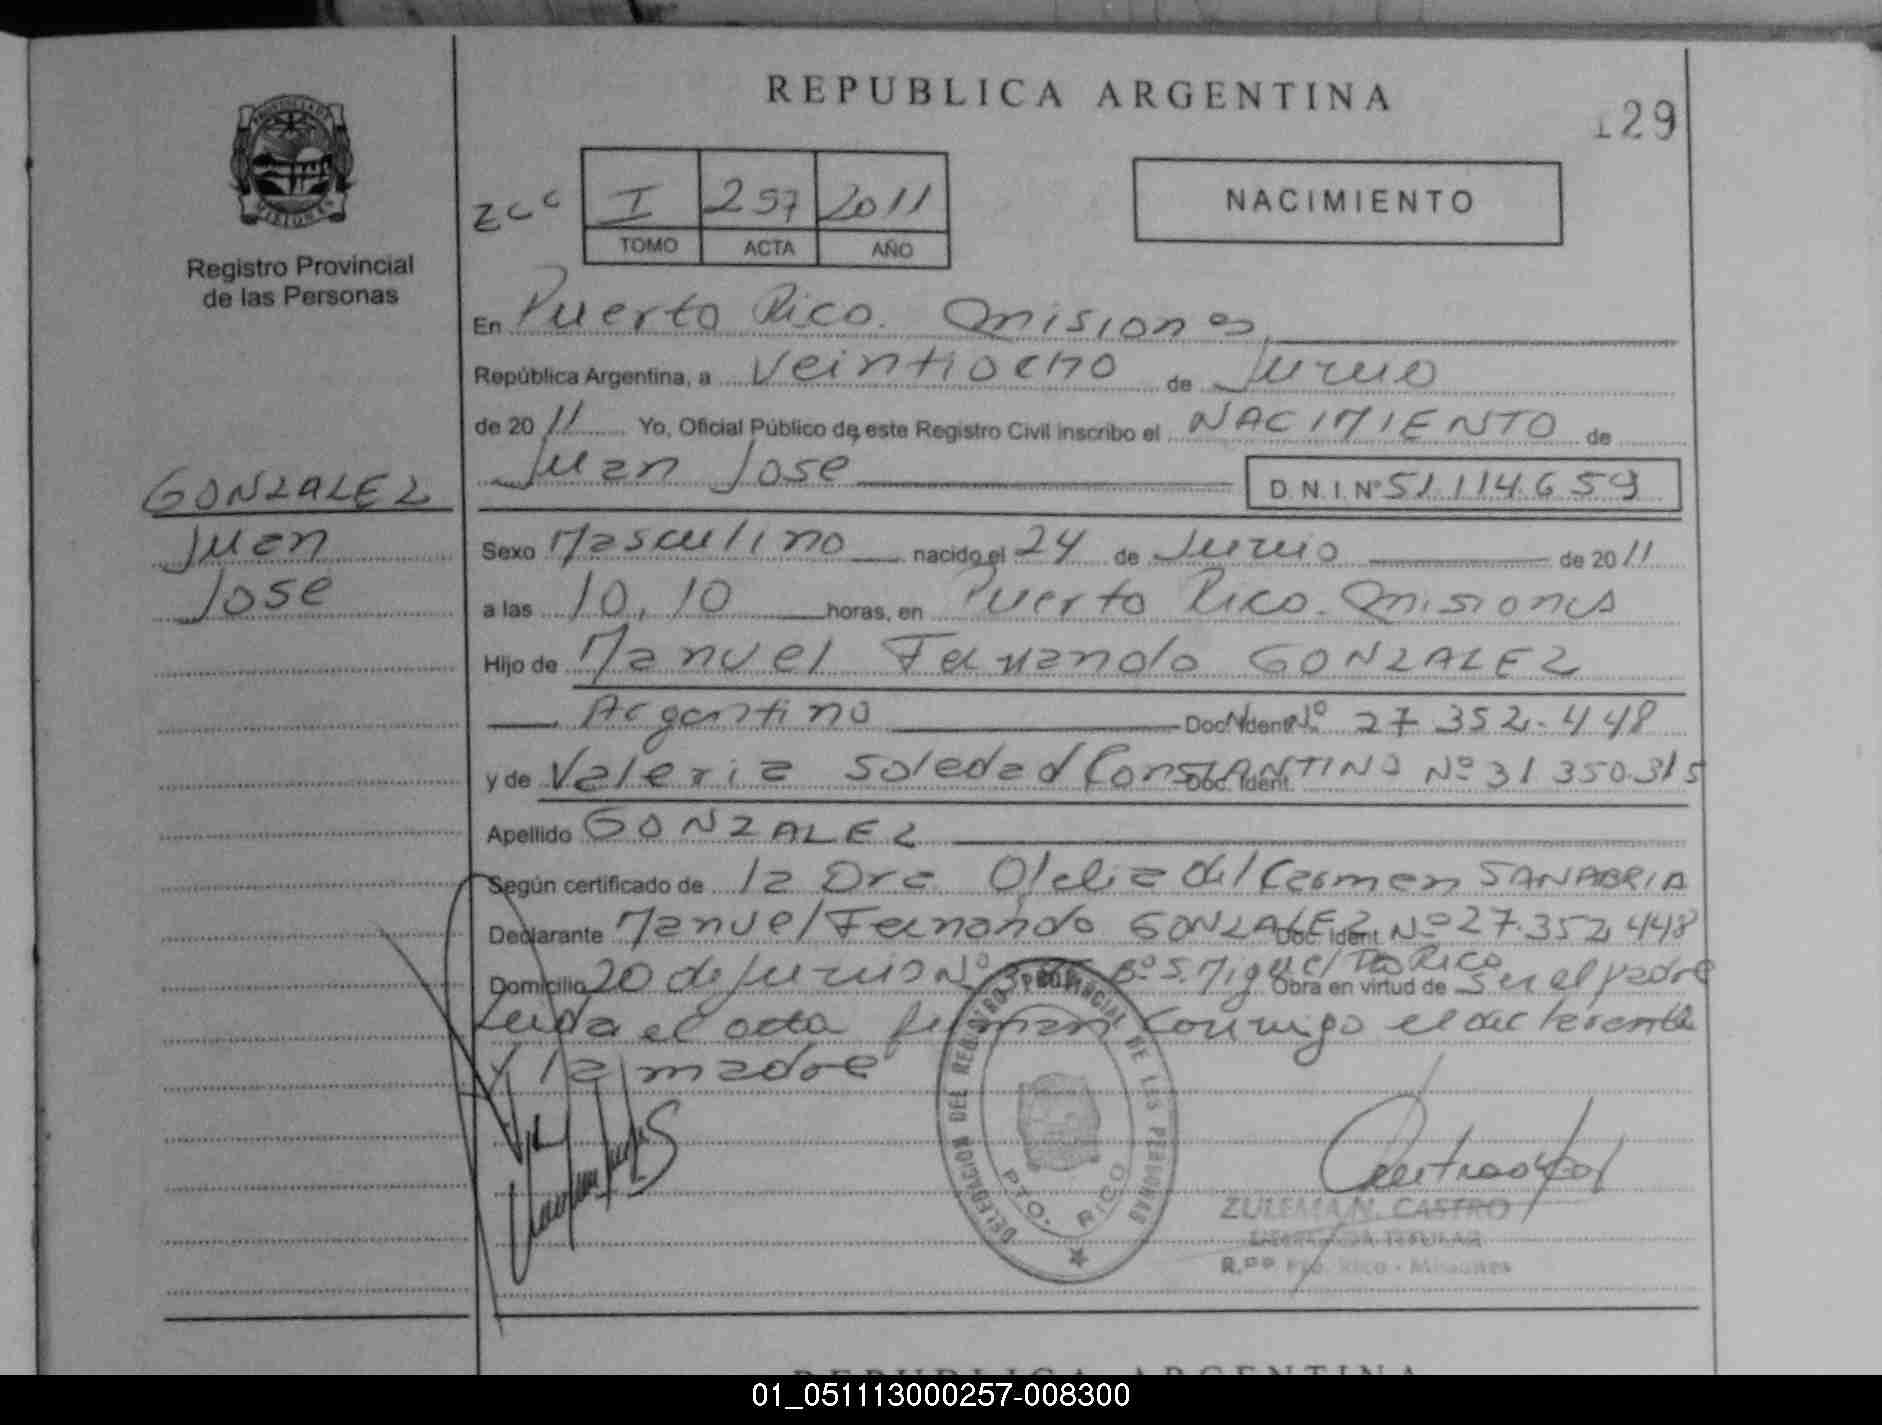 REPUBLICA ARGENTINA
129
Registro Provincial
de las Personas
zcc
I 257 2011
TOMO ACTA AÑO
NACIMIENTO
En Puerto Rico. Misiones
República Argentina, a Veintiocho de Junio
de 20 11 Yo, Oficial Público de este Registro Civil inscribo el NACIMIENTO de
Juan Jose D.N.I. Nº 51.114.659
GONZALEZ
Juan
Jose
Sexo Masculino nacido el 24 de Junio de 20 11
a las 10,10 horas, en Puerto Rico. Misiones
Hijo de Manuel Fernando GONZALEZ
Argentino Doc. Ident. Nº 27.352.448
y de Valeria Soledad CONSTANTINO Doc. Ident. Nº 31.350.315
Apellido GONZALEZ
Según certificado de la Dra. Ofelia del Carmen SANABRIA
Declarante Manuel Fernando GONZALEZ Doc. Ident. Nº 27.352.448
Domicilio 20 de Junio Nº Bº S. Miguel Pto Rico Obra en virtud de Ser el padre
Leida el acta firman conmigo el declarante
y la madre
DELEGACION DEL REGISTRO PROVINCIAL DE LAS PERSONAS
PTO. RICO
ZULEMA N. CASTRO
DELEGADA TITULAR
R.P.P. Pto. Rico - Misiones
REPUBLICA ARGENTINA
01_051113000257-008300